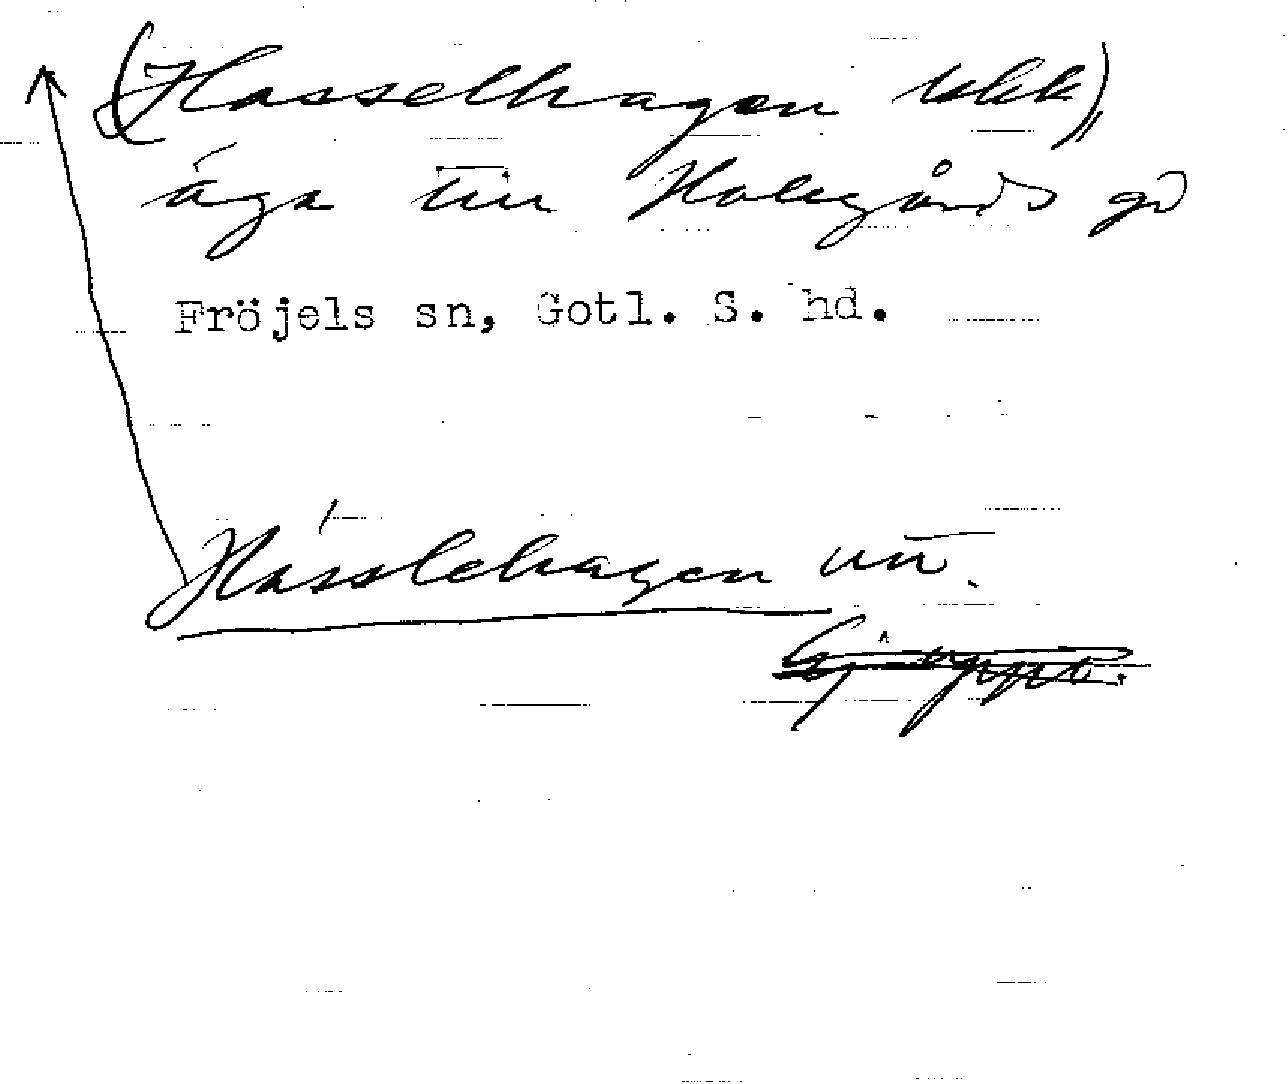 (Hasselhagen ekk)
äga till Holegårds gd
Fröjels sn, Gotl. S. hd.
Hässlehagen utt.
Ej uppt.